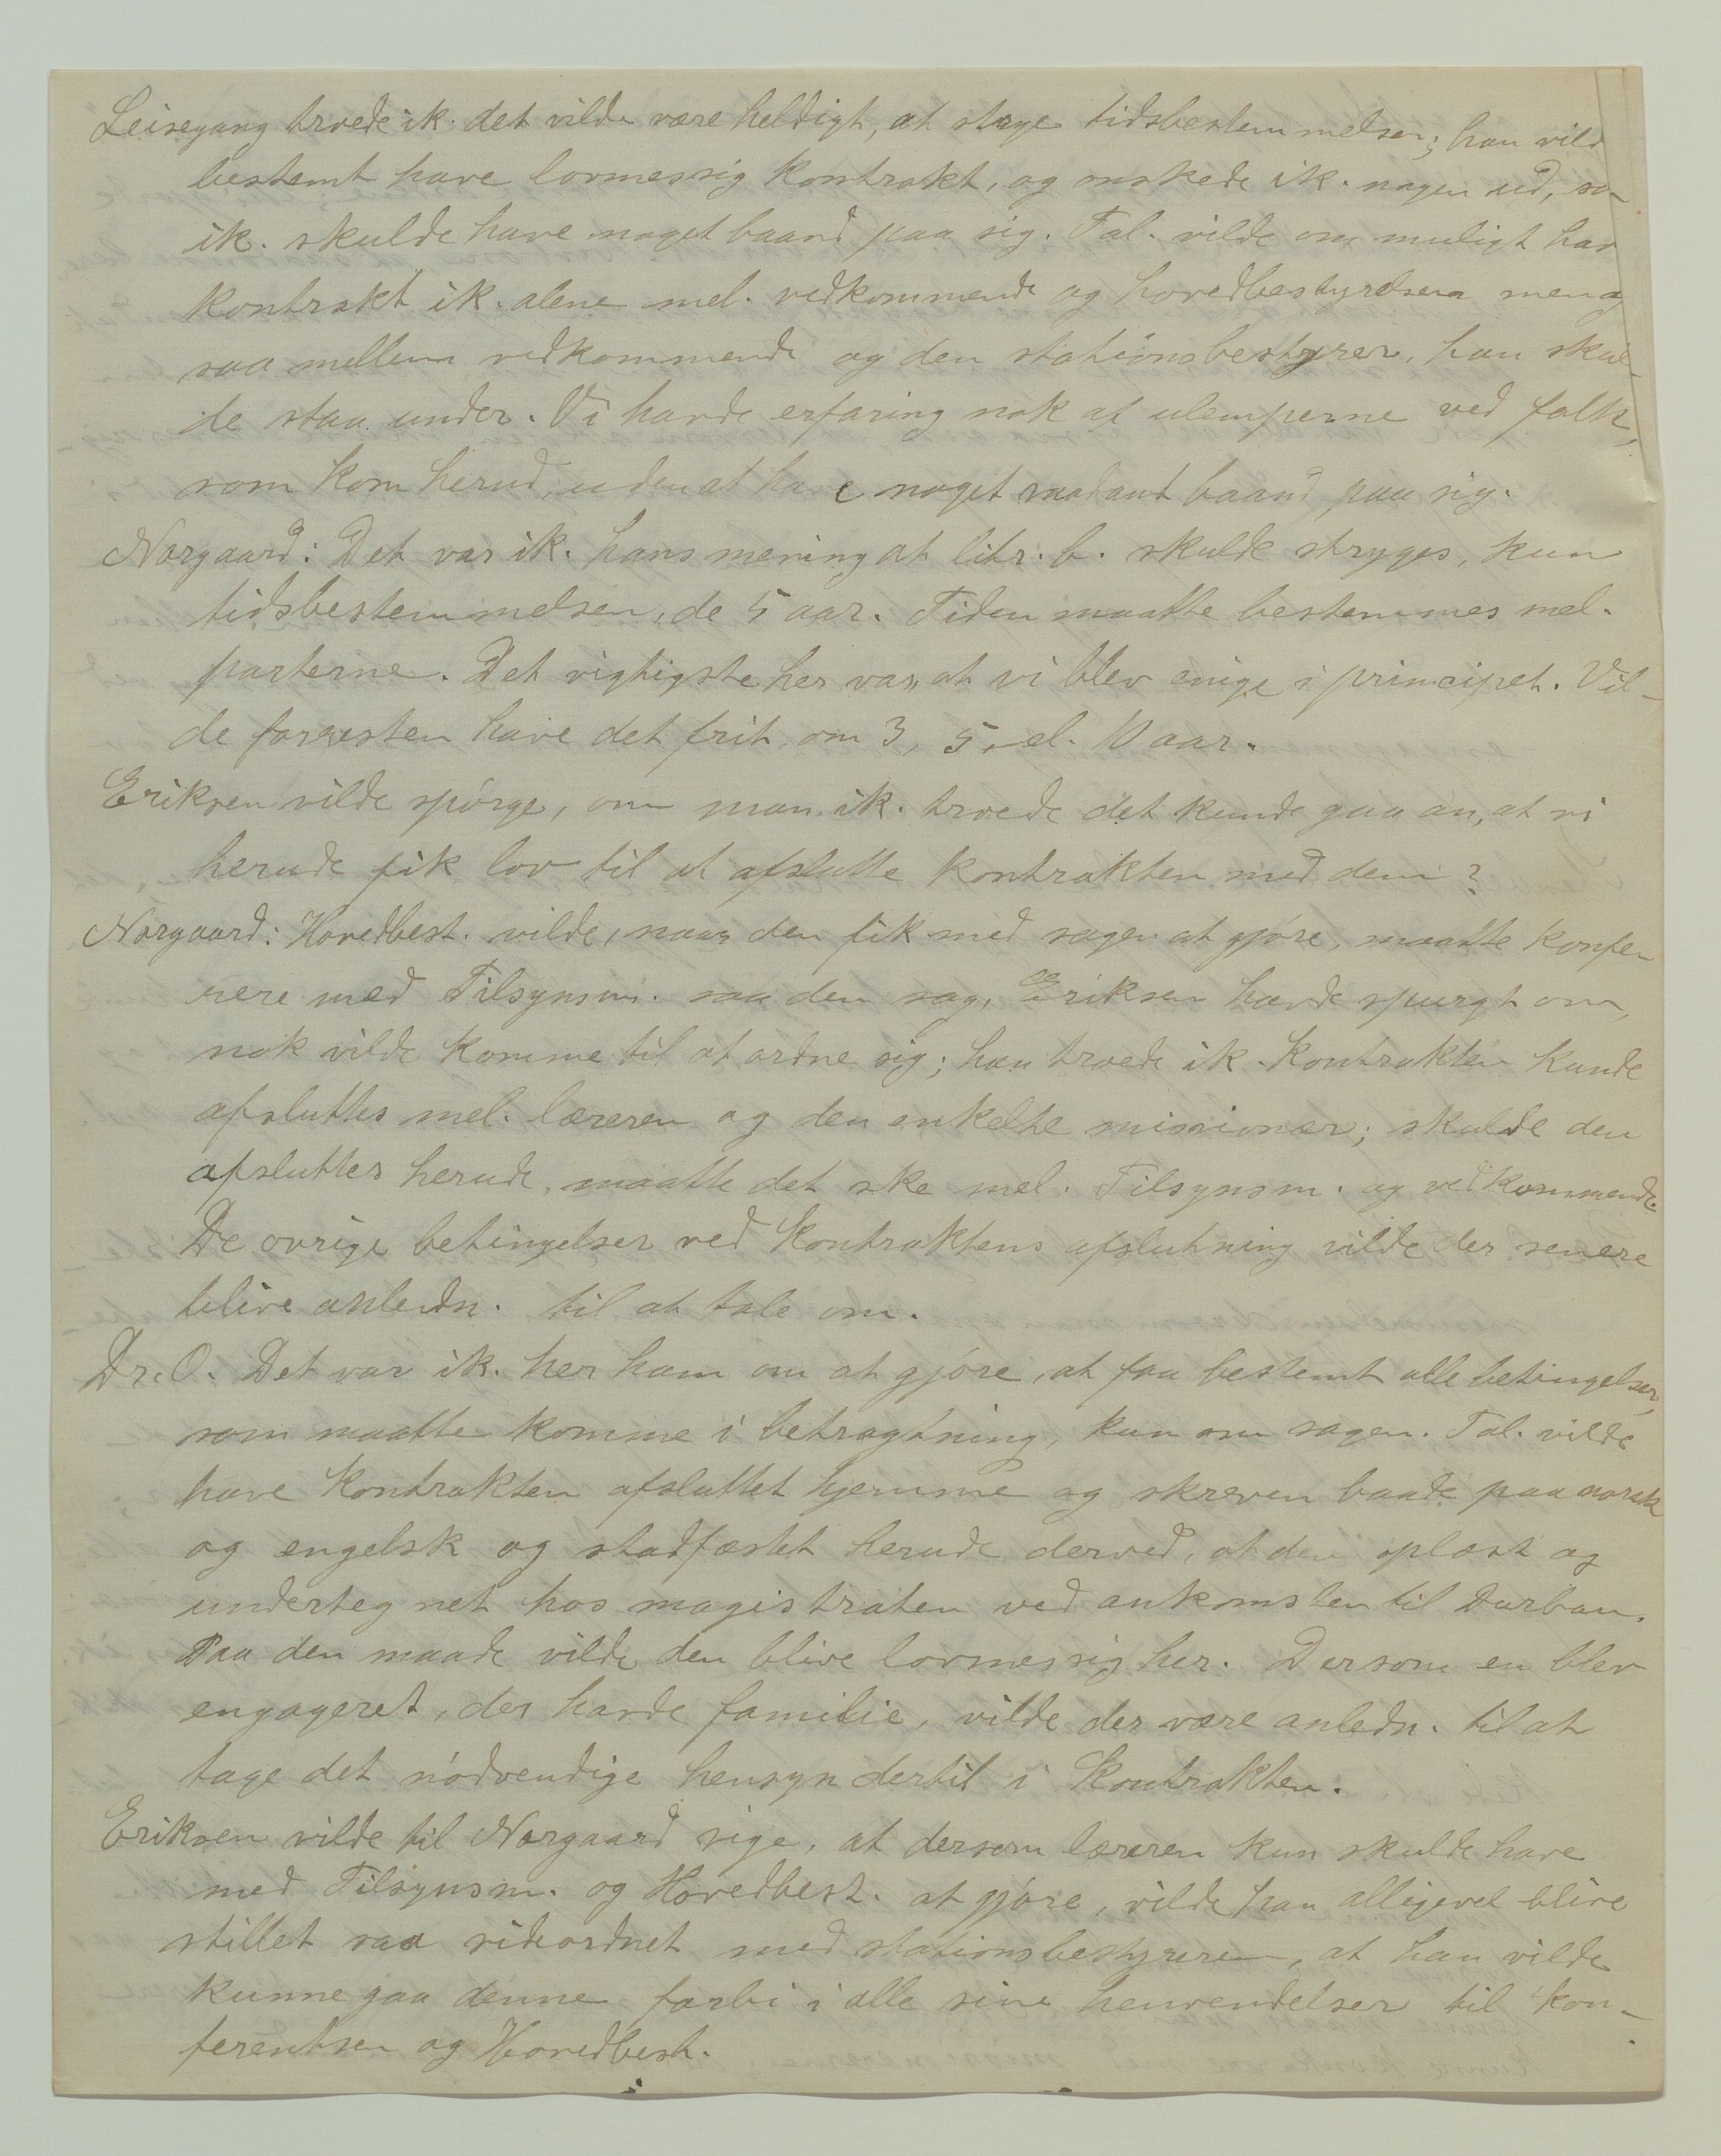 Leisegang troede ik. det vilde være heldigt, at stryge tidsbestemmelsen; han vild
bestemt have lovmessig kontrakt, og onskede ik. nogen ud, so-
ik. skulde have noget baand paa sig. Tal. vilde om muligt hav
kontrakt ik. alene mel. vedkommende og hovedbestyrelsen men og
saa mellem vedkommende og den stationsbestyrer, han skul-
de staa under. Vi havde erfaring nok af ulemperne ved folk,
som kom herud, uden at have noget saadant baand paa sig.
Norgaard: Det var ik. hans mening at litr. b. skulde stryges, kun
tidsbestemmelsen, de 5 aar. Tiden maatte bestemmes mel.
parterne. Det vigtigste her var, at vi blev enige i principet. Vil-
de forresten have det frit, om 3, 5, el. 10 aar.
Eriksen vilde spórge, om man ik. troede det kunde gaa an, at vi
herude fik lov til at afslutte kontrakten med dem?
Norgaard: Hovedbest. vilde, naar den fik med sagen at gjóre, maatte konfe-
rere med Tilsynsm. saa den sag, Eriksen havde spurgt om,
nok vilde komme til at ordne sig; han troede ik. kontrakten kunde
afsluttes mel. læreren og den enkelte missionær; skulde den
afsluttes herude, maatte det ske mel. Tilsynsm. og vedkommende.
De ovrige betingelser ved kontraktens afslutning vilde der senere
blive anledn. til at tale om.
Dr. O. Det var ik. her ham om at gjóre, at faa bestemt alle betingelser,
som maatte komme i betragtning, kun om sagen. Tal. vilde
have kontrakten afsluttet hjemme og skreven baade paa norsk
og engelsk og stadfæstet herude derved, at den oplæst og
undertegnet hos magistraten ved ankomsten til Durban.
Paa den maade vilde den blive lovmessig her. Dersom en blev
engageret, der havde familie, vilde der være anledn. til at
tage det nódvendige hensyn dertil i kontrakten.
Eriksen vilde til Norgaard sige, at dersom læreren kun skulde have
med Tilsynsm. og Hovedbest. at gjóre, vilde han alligevel blive
stillet saa sideordnet med stationsbestyreren, at han vilde
kunne gaa denne forbi i alle sine henvendelser til kon-
ferentsen og Hovedbest.